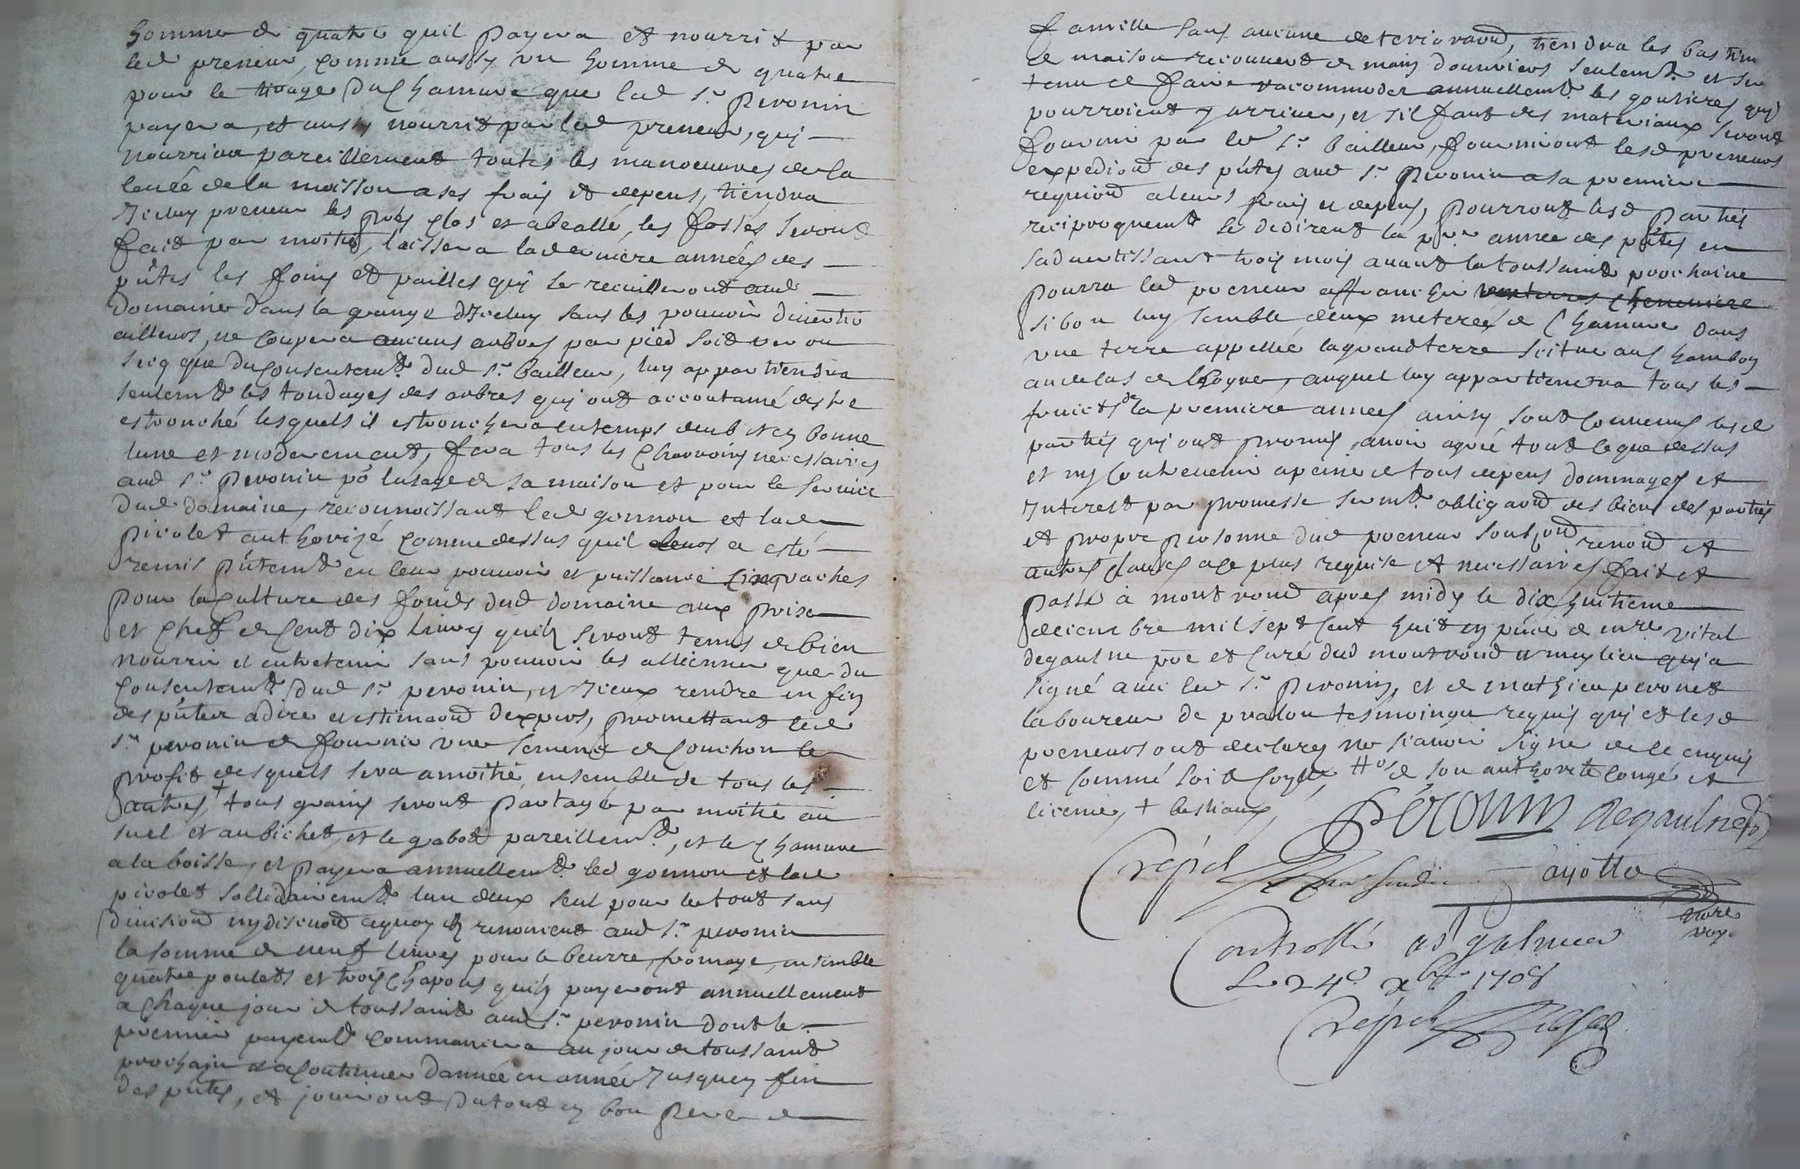 homme de quatre quil payera et nourrit par
led preneur, comme aussy un homme de quatre
pour le tirage du chanvre que led sr. Peronin
payera, et aussy nourrit par led preneur, qui
nourrira pareillement toutes les manoeuvres de la
levée de la moisson a ses frais et depens, tiendra
Icelluy preneur les prés clos et abealle, les fosses seront
fait par moitié, laissera la derniere années des
pntes les foins et pailles qui se recuilleront aud
domaine dans la grange d'Iceluy sans les pouvoir divertir
ailleurs, ne coupera aucuns arbres par pied soit ver ou
secq que du consentemt. dud sr. bailleur, luy appartiendra
seulemt les tondages des arbres qui ont accoutumé destre
estronché lesquels il estronchera en temps deub et en bonne
lune et moderement, fera tous les charroirs nécessaires
aud sr. Peronin po lusage de sa maison et pour le service
dud domaine, reconnoissant led gonnon et lad
pivolet authorizé comme dessus quil a esté
remis pntemt en leur pouvoir et puissance cinq vaches
pour la culture des fonds dud domaine aux prise
et chef de cent dix livres quils seront tenus de bien
nourrir et entretenir sans pouvoir les alliener que du
consentemt. dud sr. peronin, et Iceux rendre en fin
des pntes a dire et estimaon dexpers, promettant led
sr. peronin de fournir une semence de couchon le
profit desquels sera amoitié ensemble de tous les
autres, + tous grains seront partagé par moitié au
suel et au bichet, et le gabot pareillemt., et le chanvre
a la boisse, et payera annuellemt. led gonnon et lad
pivolet sollidairemt. lun deux seul pour le tout sans
division ny discution aquoy ils renoncent aud sr. peronin
la somme de neuf livres pour le beurre, fromage, ensemble
quatre poulets et trois chapons quils payeront annuellement
a chaque jour de toussaint aud sr. peronin dont le
premier payemt commancera au jour de toussaint
prochain et a continuer dannée en année Jusques en fin
des pntes, et jouiront du tout en bon pere de
famille sans aucune deterioraon, tiendra les bastim
de maison recouvert de main d'ouvriers seulemt. et sera
tenu de faire racommoder annuellemt. les goutieres qui
pourroient y arriver, et sil faut des materiaux seront
fourni par led sr. bailleur, fourniront lesd preneurs
expedion des pntes aud sr. Peronin a sa premiere
requion a leurs frais et depens, pourront lesd parties
reciproquemt. se dedirent la pre. année des pntes en
sadvertissant trois mois avant la toussaint prochaine
pourra led preneur affranchir
si bon luy semble deux meterée de chanvre dans
une terre appellée lagrandterre scitue aux chambon
au delas de Loyre, auquel luy appartiendra tous les
fruicts de la premiere années, ainsy sont convenus lesd
parties qui ont promis avoir agree tout ce que dessus
et ny contrevenir a peine de tous depens dommages et
Interest par promesse sermt. obligaon des biens des parties
et propre personne dud preneur soubzon renon et
autres clauses a ce plus requise et necessaires fait et
passé a montrond apres midy le dix huitieme
decembre mil sept cent huit en pnce de mre. vital
degaulne pbre et curé dud montrond et mexlieu qui a
signé avec led sr. Peronin, et de mathieu peronet
laboureur de pralon tesmoings requis qui et lesd
preneurs ont declarez ne scavoir signe de ce enquis
et sommé soit scellé
licenie, + bestiaux
Péronin degaulne
Crepet Ayotte
nore
roy.
Controllé a St galmier
Le 24e xbre 1708
Crepet